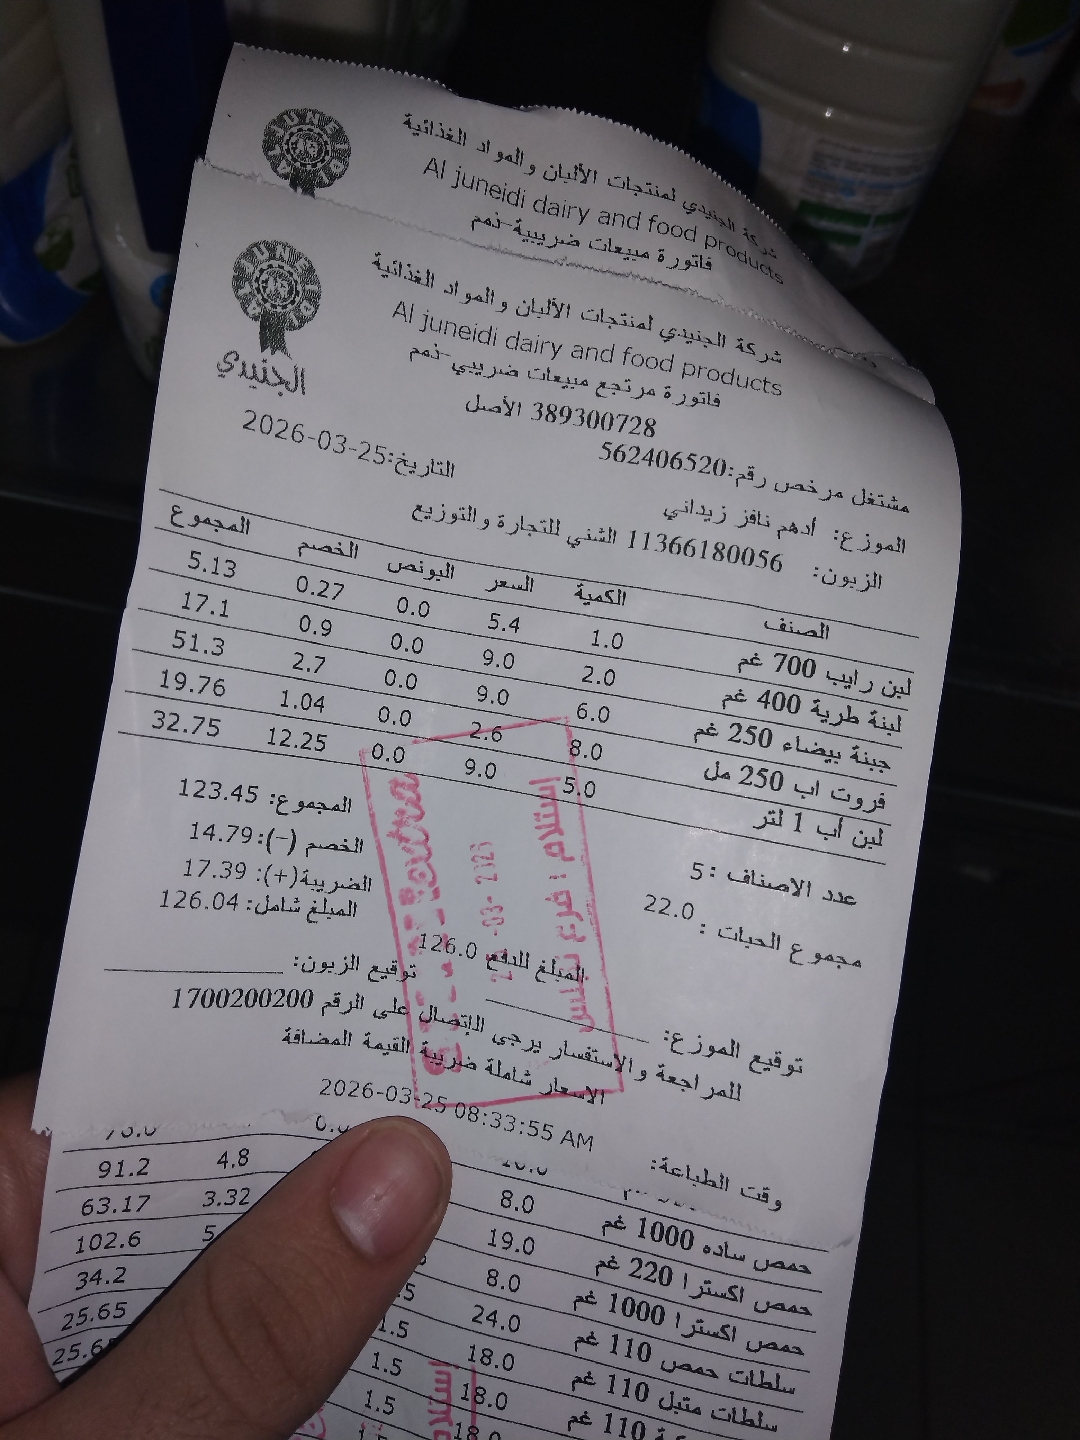 شركة الجنيدي لمنتجات الألبان والمواد الغذائية
Al juneidi dairy and food products
فاتورة مبيعات ضريبية-ذمم
شركة الجنيدي لمنتجات الألبان والمواد الغذائية
Al juneidi dairy and food products
الجنيدي
فاتورة مرتجع مبيعات ضريبي-ذمم
389300728 الأصل
مشتغل مرخص رقم:562406520
التاريخ:2026-03-25
الموزع: أدهم نافز زيداني
الزبون: 11366180056 الشني للتجارة والتوزيع
الصنف الكمية السعر البونص الخصم المجموع
لبن رايب 700 غم 1.0 5.4 0.0 0.27 5.13
لبنة طرية 400 غم 2.0 9.0 0.0 0.9 17.1
جبنة بيضاء 250 غم 6.0 9.0 0.0 2.7 51.3
فروت اب 250 مل 8.0 2.6 0.0 1.04 19.76
لبن أب 1 لتر 5.0 9.0 0.0 12.25 32.75
عدد الاصناف :5
المجموع: 123.45
مجموع الحبات : 22.0
الخصم (-):14.79
الضريبة(+): 17.39
المبلغ شامل: 126.04
المبلغ للدفع 126.0
استلام : فرع نابلس
توقيع الموزع:
توقيع الزبون:
للمراجعة والاستفسار يرجى الإتصال على الرقم 1700200200
الاسعار شاملة ضريبة القيمة المضافة
وقت الطباعة: 2026-03-25 08:33:55 AM
حمص ساده 1000 غم 8.0 4.8 91.2
حمص اكسترا 220 غم 19.0 3.32 63.17
حمص اكسترا 1000 غم 8.0 102.6
سلطات حمص 110 غم 24.0 34.2
سلطات متبل 110 غم 18.0 1.5 25.65
110 غم 18.0 1.5
18.0 1.5
استلام